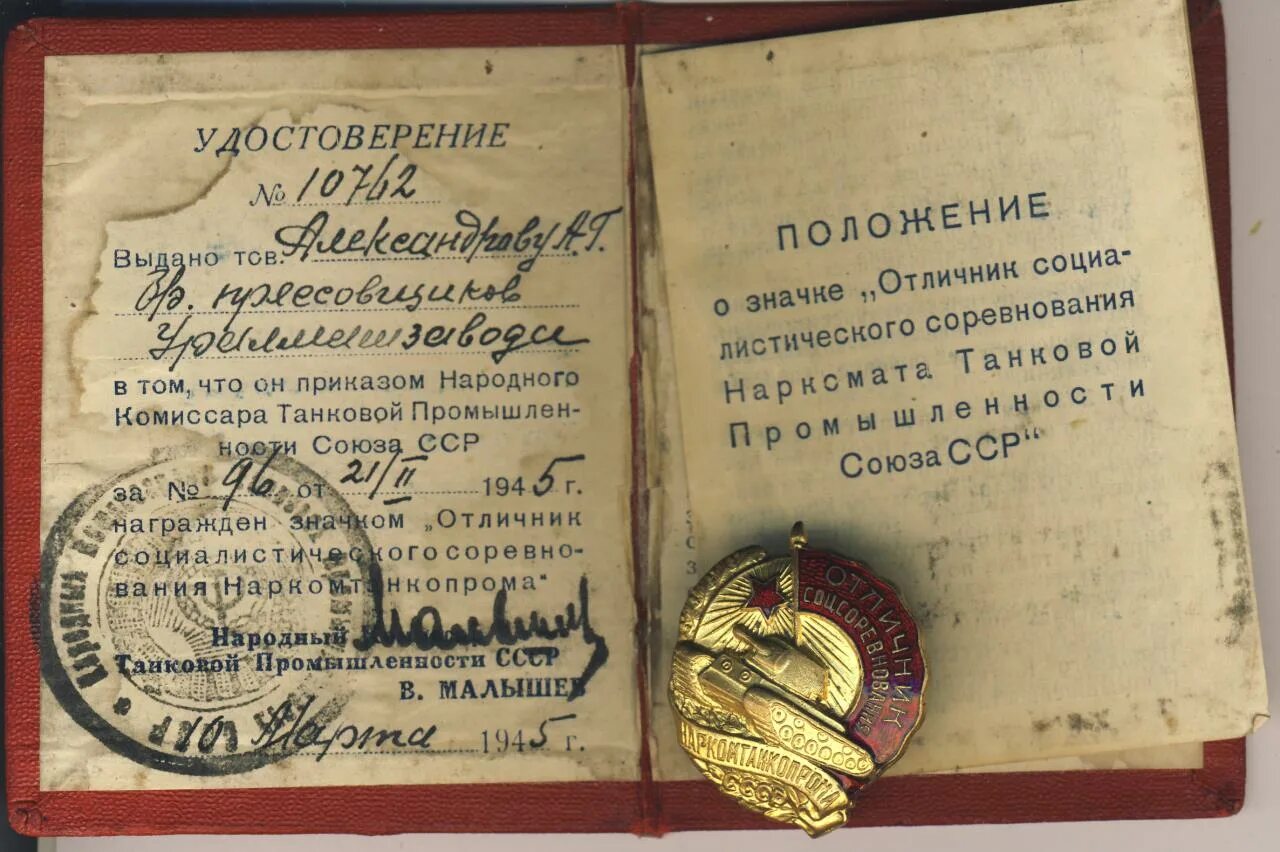 УДОСТОВЕРЕНИЕ
№ 10762
Выдано тов. Александрову А.Г.
бр. прессовщиков
Уралмашзавода
в том, что он приказом Народного
Комиссара Танковой Промышлен-
ности Союза ССР
за № 96 от 21/II 1945 г.
награжден значком „Отличник
социалистического соревно-
вания Наркомтанкопрома"
Народный
Танковой Промышленности СССР
В. МАЛЫШЕВ
10 Марта 1945 г.
ПОЛОЖЕНИЕ
о значке „Отличник социа-
листического соревнования
Наркомата Танковой
Промышленности
Союза ССР"
ОТЛИЧНИК
СОЦСОРЕВНОВАНИЯ
НАРКОМТАНКОПРОМА
СССР